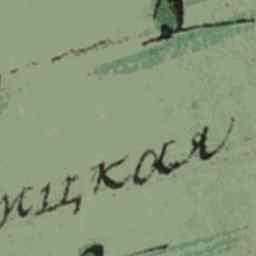 ицкая